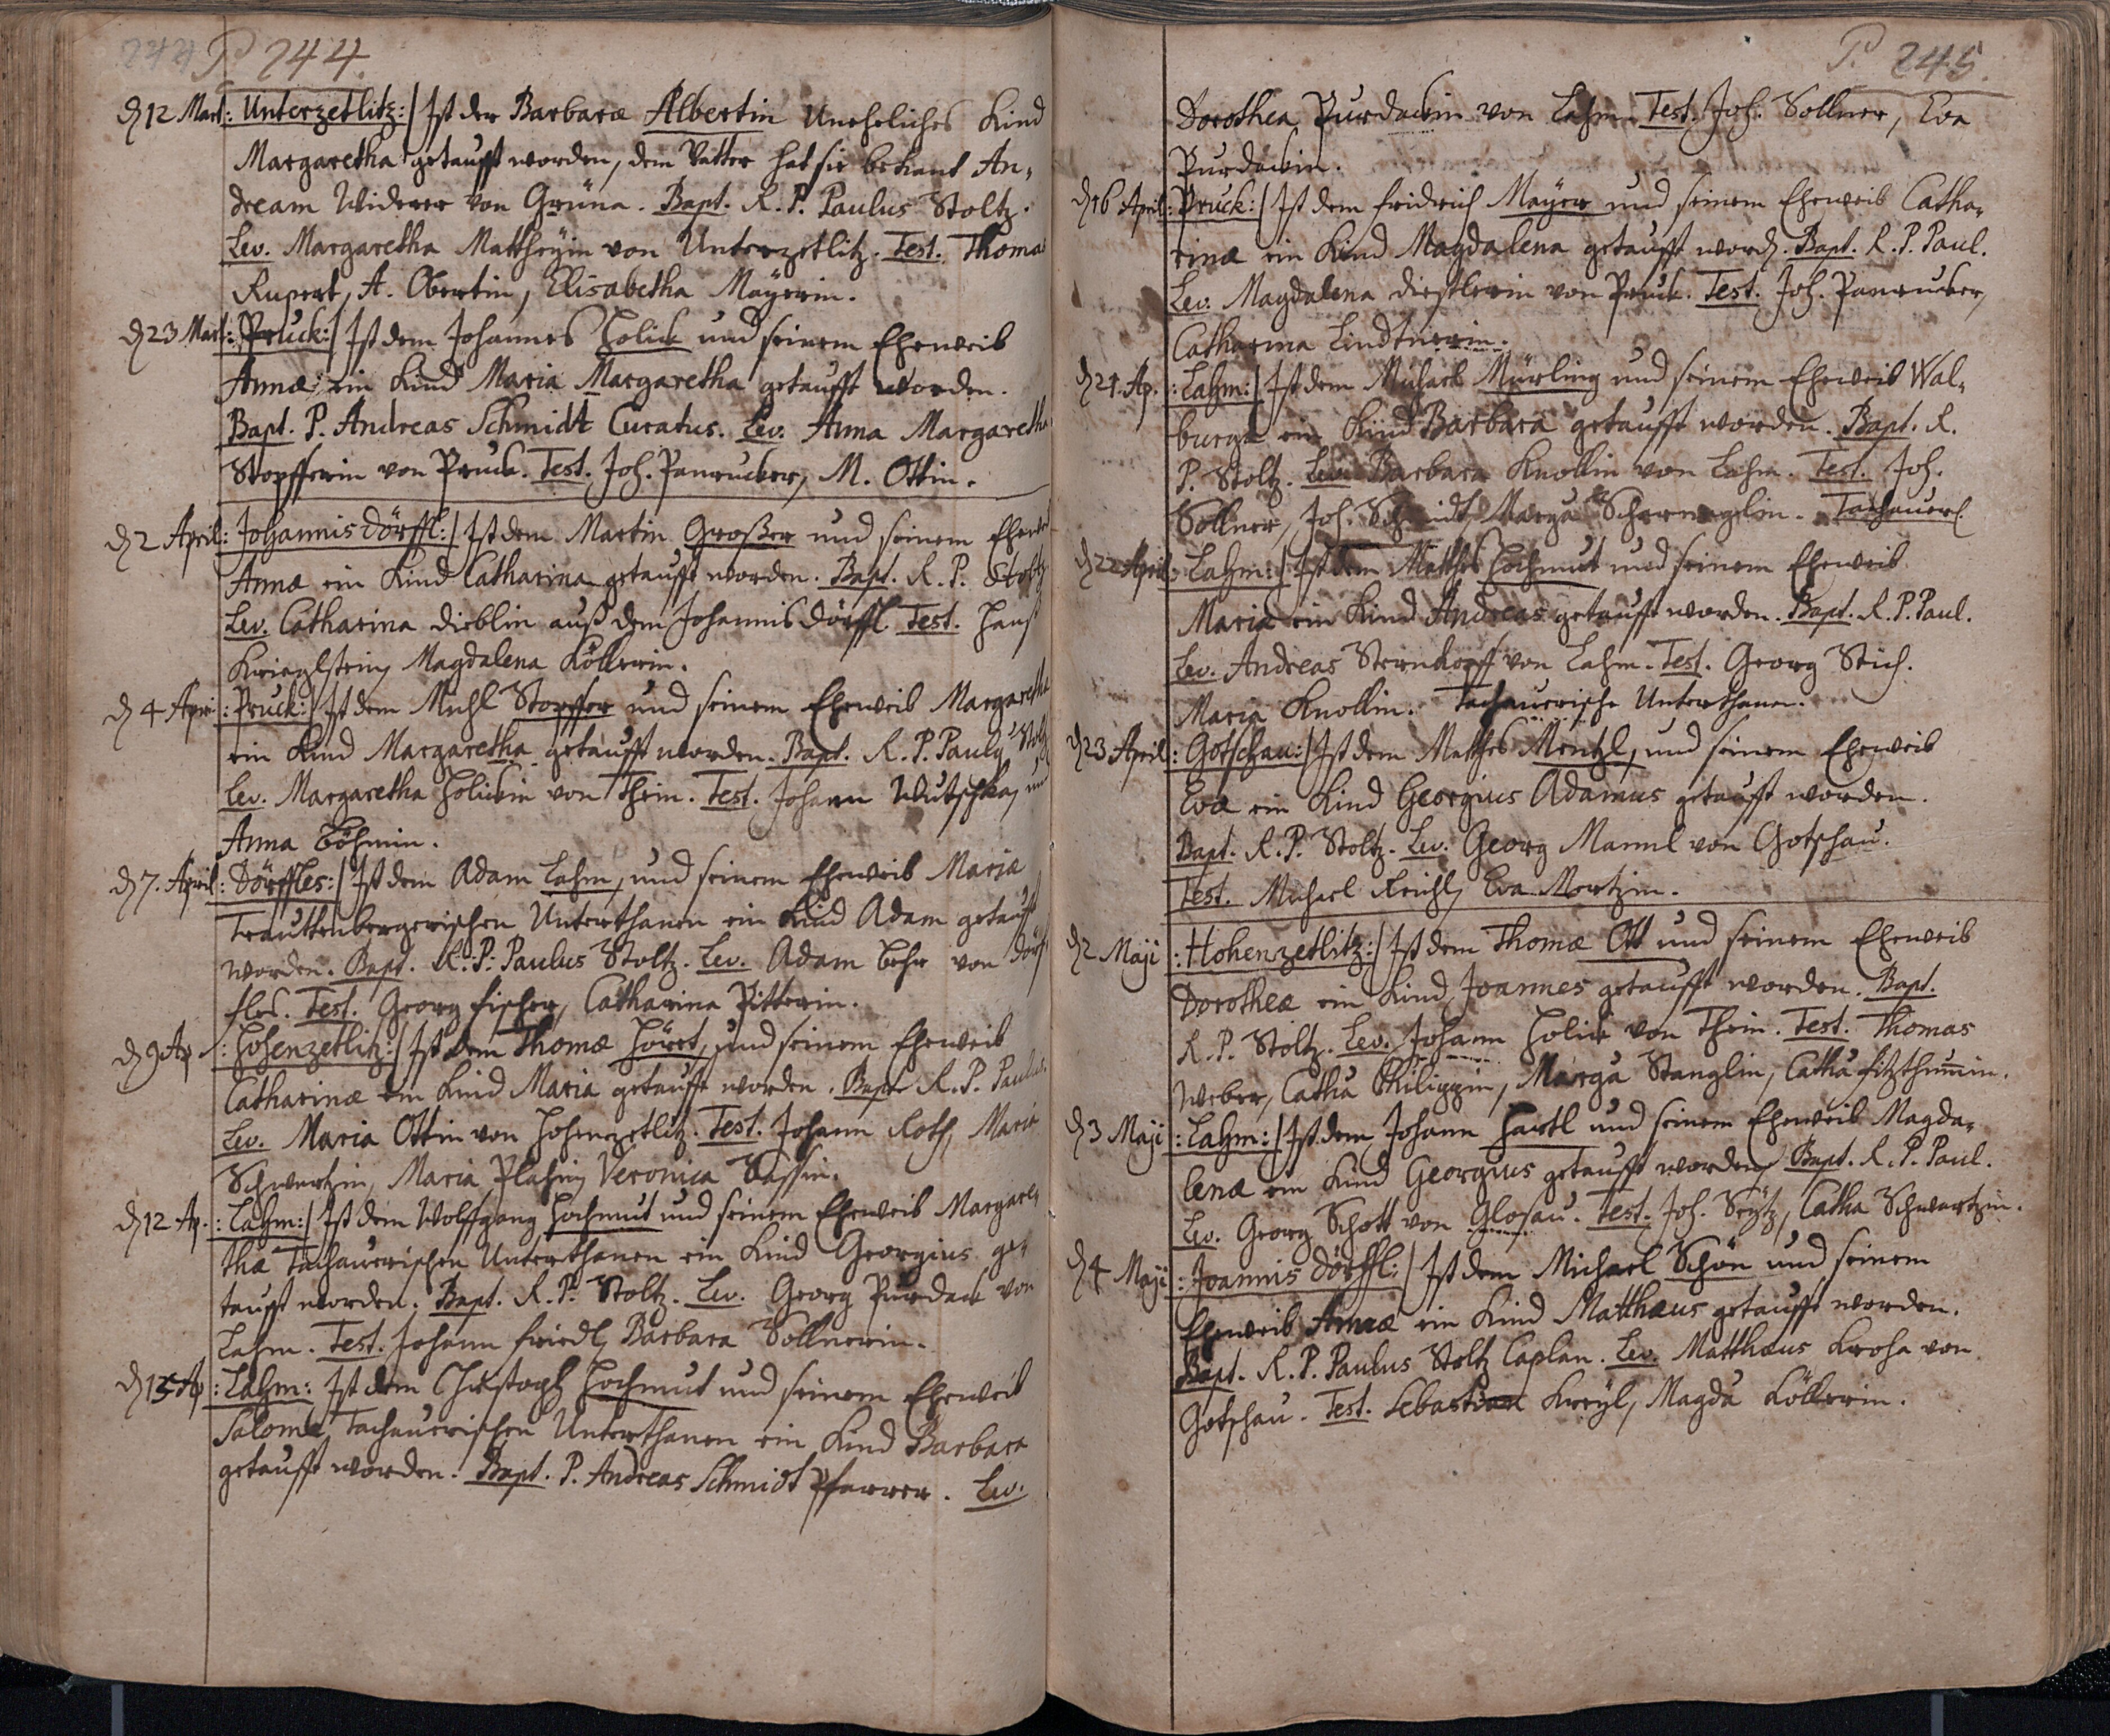 244 P 244.
d 12 Mart: Unterzetlitz:/ Ist der Barbaræ Albertin Uneheliches Kind
Margaretha getaufft worden, dem Vatter hat sie bekant An-
dream Widerer von Grüna. Bapt. R. P. Paulus Stoltz.
Lev. Margaretha Mattheÿin von Unterzetlitz. Test. Thoma
Rupert, A. Obertin, Elisabetha Maÿerin.
d 23 Mart: Pruck:/ Ist dem Johannes Holick und seinem Eheweib
Annæ ein Kind Maria Margaretha getaufft worden.
Bapt. P. Andreas Schmidt Curatus. Lev. Anna Margaretha
Stopfferin von Pruck. Test. Joh. Panrucker, M. Ottin.
d 2 April: Johannis Dörffl:/ Ist dem Martin Großer und seinem Ehewei
Annæ ein Kind Catharina getaufft worden. Bapt. R. P. Stoltz
Lev. Catharina Dieblin auß dem Johannis Dörffl. Test. Hanß
Krieglstein, Magdalena Köllerin.
d 4 Apri: Pruck:/ Ist dem Michl Stopffer und seinem Eheweib Margaretha
ein Kind Margaretha getaufft worden. Bapt. R. P. Paulg Stoltz
Lev. Margaretha Holickin von Thein. Test. Johann Wutschka, und
Anna Böhmin.
d 7. April: Dörffles:/ Ist dem Adam Lahm, und seinem Eheweib Mariæ
Trauttenbergerischen Unterthanen ein Kind Adam getaufft
worden. Bapt. R. P. Paulus Stoltz. Lev. Adam Behr von Dörf
fles. Test. Georg Fischer, Catharina Pitterin.
d 9 Ap: Hohenzetlitz:/ Ist dem Thomæ Höret, und seinem Eheweib
Catharinæ ein Kind Maria getaufft worden. Bapt. R. P. Paulus.
Lev. Maria Ottin von Hohenzetlitz. Test. Johann Roth, Maria
Schwertzin, Maria Plahin, Veronica Sassin.
d 12 Ap.: Lahm:/ Ist dem Wolffgang Hochmut und seinem Eheweib Margare-
thæ Tachauerischen Unterthanen ein Kind Georgius ge-
taufft worden. Bapt. R. P. Stoltz. Lev. Georg Purdack von
Lahm. Test. Johann Friedl, Barbara Sollnerin.
d 15 Ap: Lahm: Ist dem Christoph Hochmut und seinem Eheweib
Salome Tachauerischen Unterthanen ein Kind Barbara
getaufft worden. Bapt. P. Andreas Schmidt Pfarrer. Lev.
P. 245.
Dorothea Purdackin von Lahm. Test. Joh. Sollner, Eva
Purdackin.
d 16 April: Pruck:/ Ist dem Fridrich Maÿer und seinem Eheweib Catha-
rinæ ein Kind Magdalena getaufft word. Bapt. R. P. Paul.
Lev. Magdalena Diestlerin von Pruck. Test. Joh. Panrucker,
Catharina Lindtnerin.
d 21. Ap.: Lahm:/ Ist dem Michael Mürling und seinem Eheweib Wal-
burga ein Kind Barbara getaufft worden. Bapt. R.
P. Stoltz. Lev. Barbara Knollin von Lahm. Test. Joh.
Sollner, Joh. Schmidt, Marga Scharnagelin. Tachauerl.
d 22 April: Lahm:/ Ist dem Mathes Hochmut und seinem Eheweib
Maria ein Kind Andreas getaufft worden. Bapt. R. P. Paul.
Lev. Andreas Sternkopff von Lahm. Test. Georg Stich.
Maria Knollin. Tachauerische Unterthanen.
d 23 April: Gotschau:/ Ist dem Mathes Mentzl, und seinem Eheweib
Evæ ein Kind Georgius Adamus getaufft worden.
Bapt. R. P. Stoltz. Lev. Georg Mannl von Gotschau.
Test. Michael Reichl, Eva Mertzin.
d 2 Maji: Hohenzetlitz:/ Ist dem Thomæ Ott und seinem Eheweib
Dorotheæ ein Kind Joannes getaufft worden. Bapt.
R. P. Stoltz. Lev. Johann Holick von Thein. Test. Thomas
Weber, Catha Philippin, Marga Stanglin, Catha Fitzthumin.
d 3 Maji: Lahm:/ Ist dem Johann Hartl und seinem Eheweib Magda-
lenæ ein Kind Georgius getaufft worden. Bapt. R. P. Paul.
Lev. Georg Schott von Glosau. Test. Joh. Seÿtz, Catha Schwartzin.
d 4 Maji: Joannis Dörffl:/ Ist dem Michael Schön und seinem
Eheweib Annæ ein Kind Matthæus getaufft worden.
Bapt. R. P. Paulus Stoltz Caplan. Lev. Matthæus Kroha von
Gotschau. Test. Sebastian Kreÿl, Magda Köllerin.